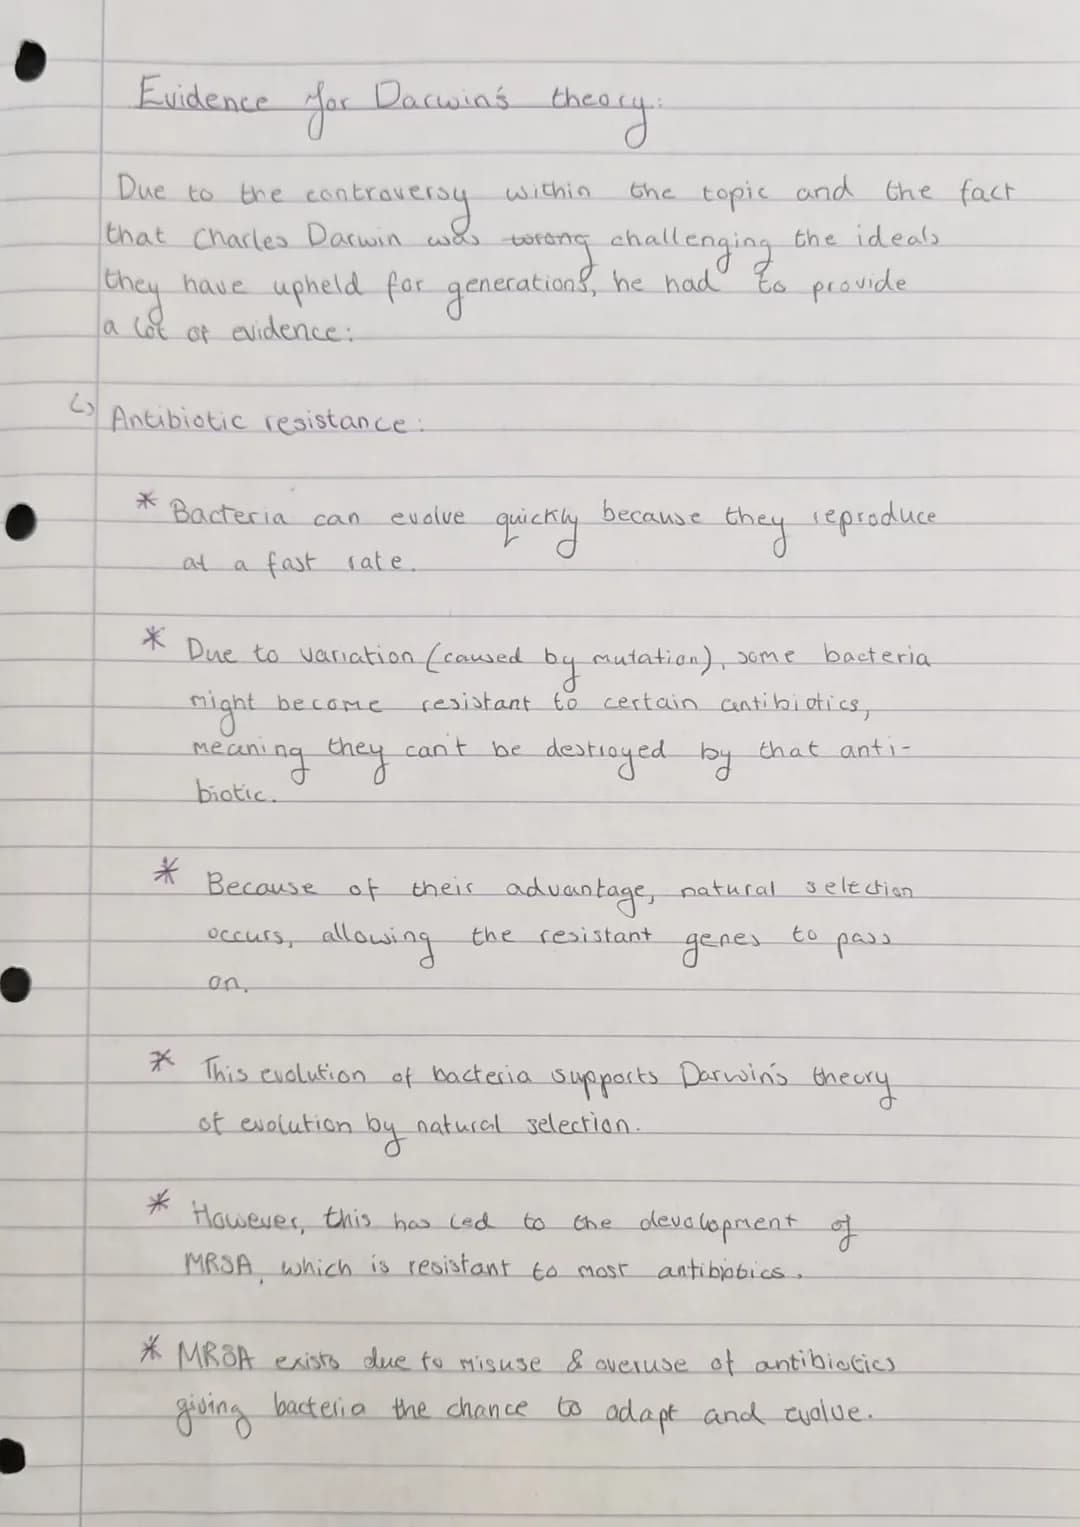 Evidence for Darwin's theory:
Due to the controversy within the topic and the fact
that Charles Darwin was challenging the ideals
they have upheld for generations, he had to provide
a lot of evidence:
↳ Antibiotic resistance:
* Bacteria can evolve quickly because they reproduce
at a fast rate.
* Due to variation (caused by mutation), some bacteria
might become resistant to certain antibiotics,
meaning they can't be destroyed by that anti-
biotic.
* Because of their advantage, natural selection
occurs, allowing the resistant genes to pass
on.
* This evolution of bacteria supports Darwin's theory
of evolution by natural selection.
* However, this has led to the development of
MRSA, which is resistant to most antibiotics.
* MRSA exists due to misuse & overuse of antibiotics
giving bacteria the chance to adapt and evolve.